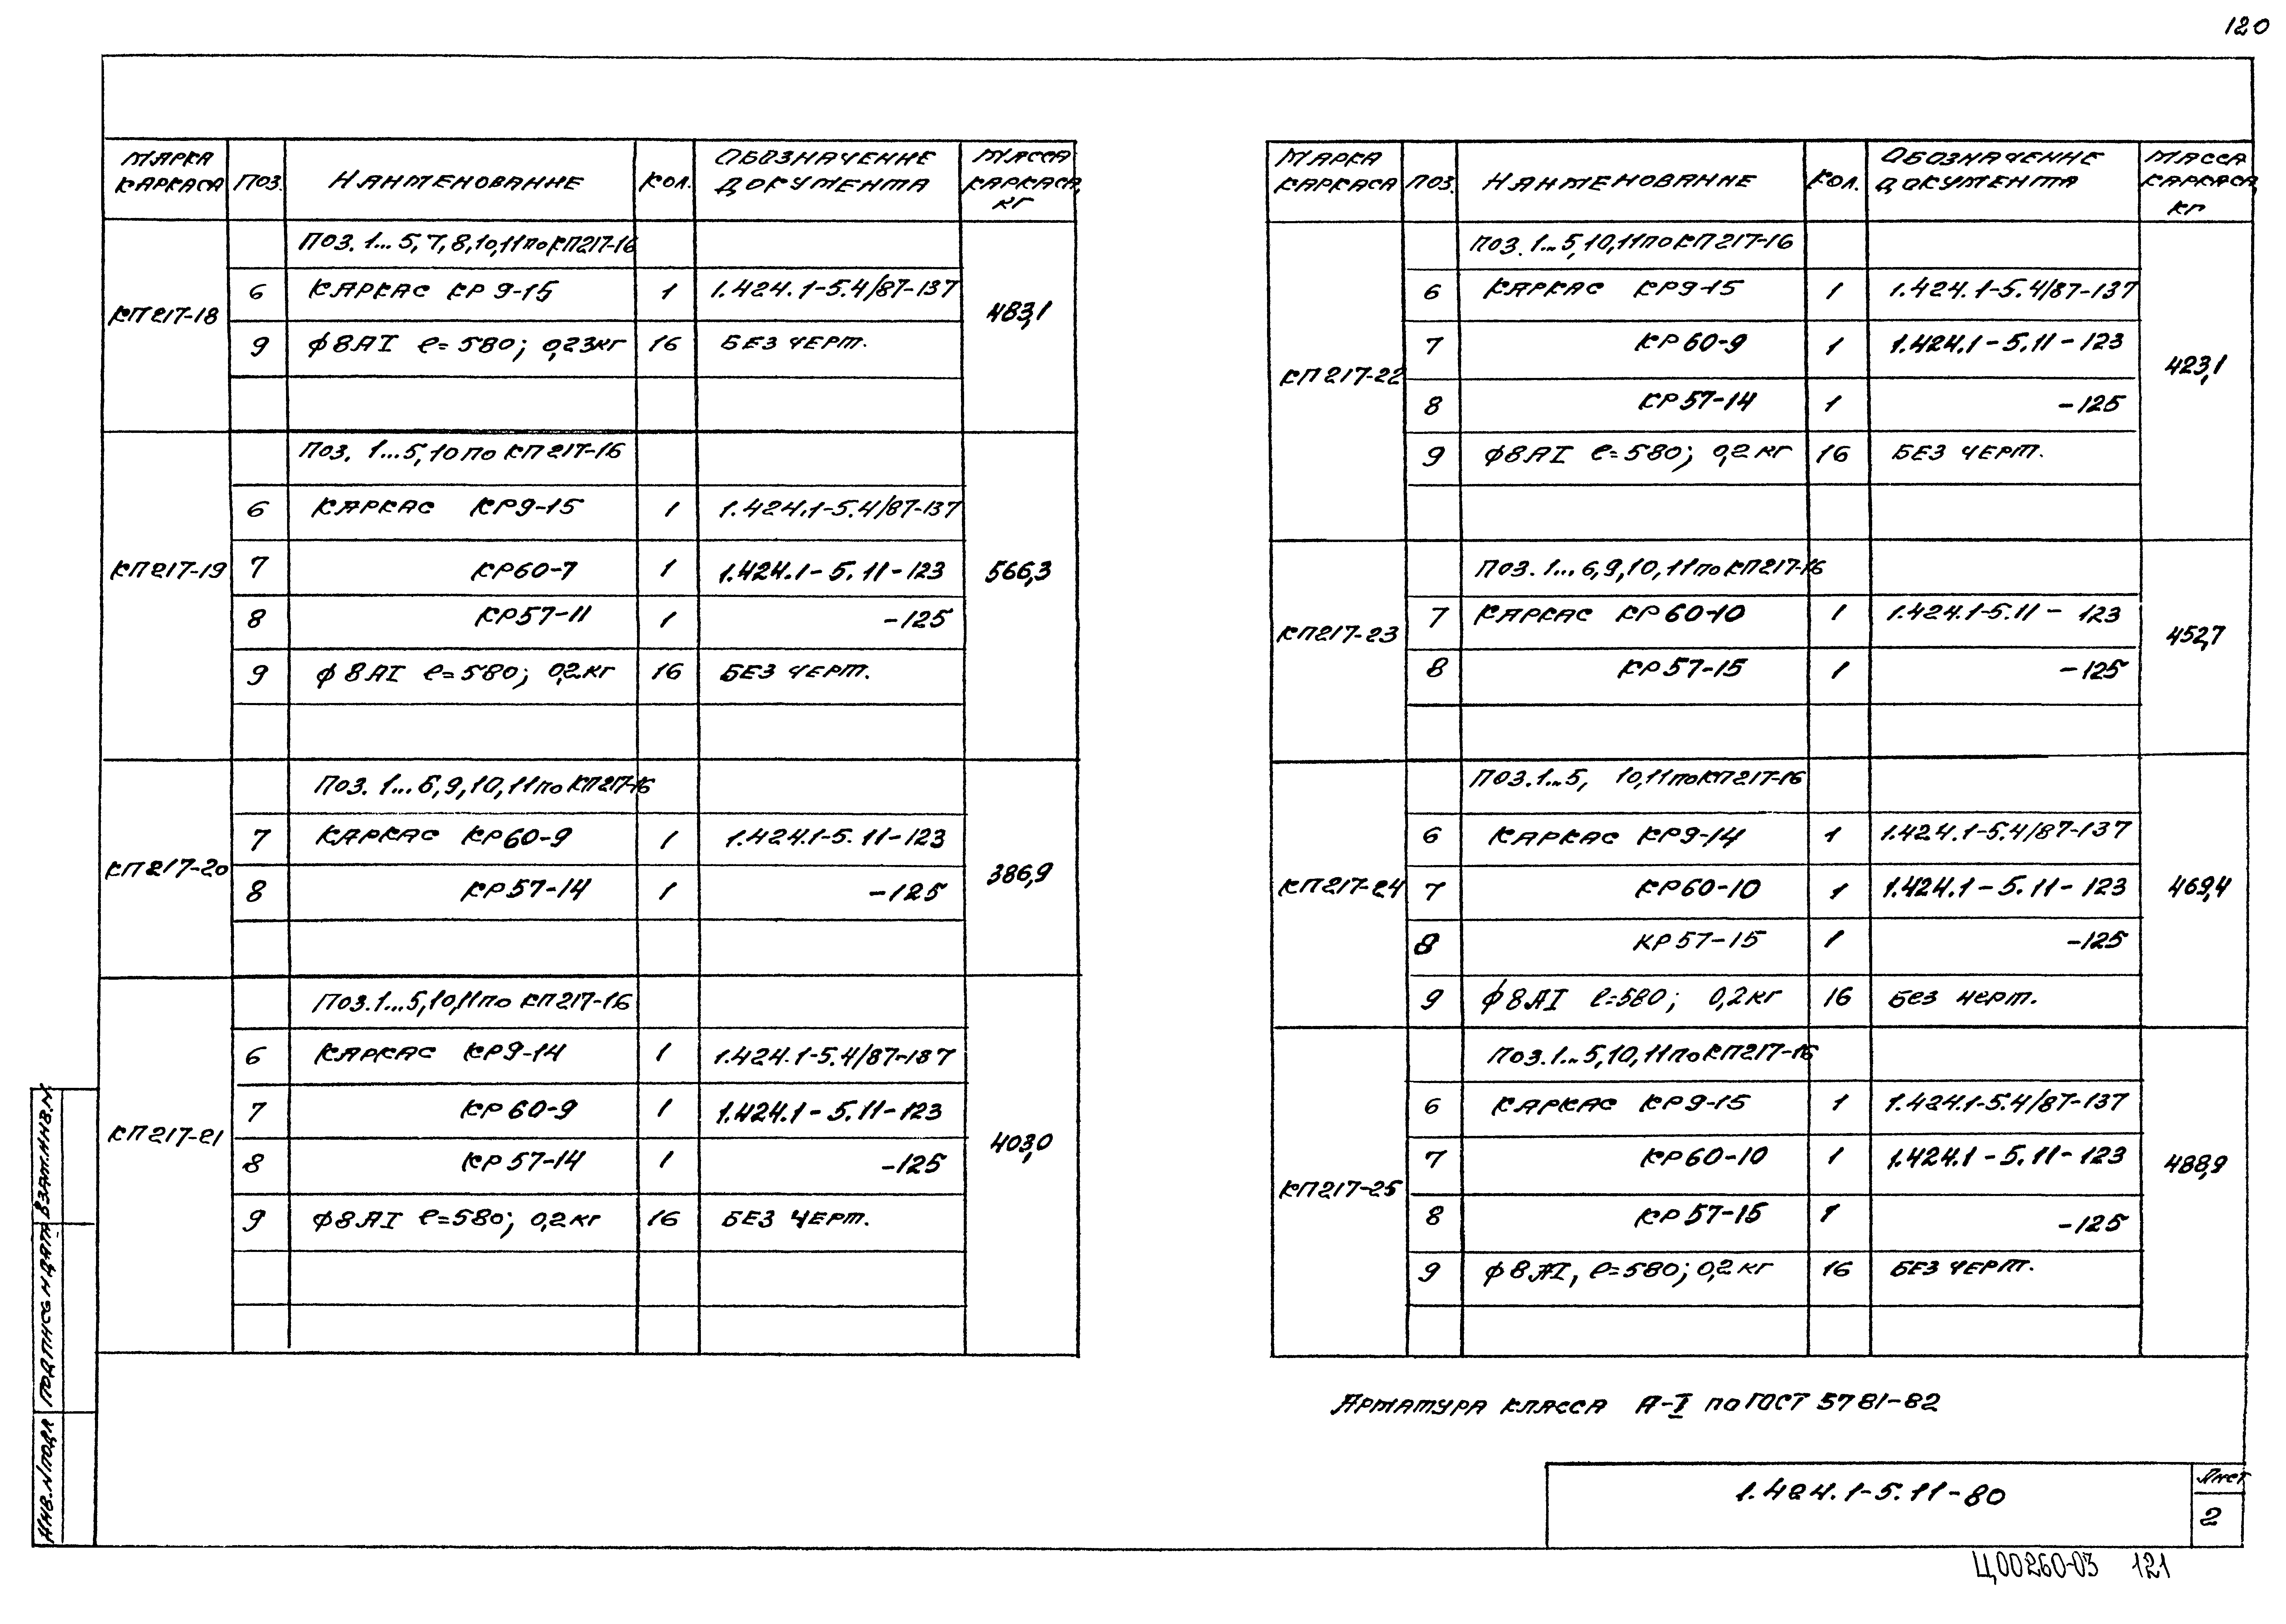 120
МАРКА КАРКАСА ПОЗ. НАИМЕНОВАНИЕ КОЛ. ОБОЗНАЧЕНИЕ ДОКУМЕНТА МАССА КАРКАСА, КГ
КП217-18
Поз. 1...5,7,8,10,11 по КП217-16
6 КАРКАС КР9-15 1 1.424.1-5.4/87-137
483,1
9 ф8АI ℓ=580; 0,23кг 16 БЕЗ ЧЕРТ.
КП217-19
Поз. 1...5,10 по КП217-16
6 КАРКАС КР9-15 1 1.424.1-5.4/87-137
7 КР60-7 1 1.424.1-5.11-123
566,3
8 КР57-11 1 -125
9 ф8АI ℓ=580; 0,2кг 16 БЕЗ ЧЕРТ.
КП217-20
Поз. 1...6,9,10,11 по КП217-16
7 КАРКАС КР60-9 1 1.424.1-5.11-123
386,9
8 КР57-14 1 -125
КП217-21
Поз. 1...5,10,11 по КП217-16
6 КАРКАС КР9-14 1 1.424.1-5.4/87-137
7 КР60-9 1 1.424.1-5.11-123
403,0
8 КР57-14 1 -125
9 ф8АI ℓ=580; 0,2кг 16 БЕЗ ЧЕРТ.
МАРКА КАРКАСА ПОЗ. НАИМЕНОВАНИЕ КОЛ. ОБОЗНАЧЕНИЕ ДОКУМЕНТА МАССА КАРКАСА, КГ
КП217-22
Поз. 1...5,10,11 по КП217-16
6 КАРКАС КР9-15 1 1.424.1-5.4/87-137
7 КР60-9 1 1.424.1-5.11-123
423,1
8 КР57-14 1 -125
9 ф8АI ℓ=580; 0,2кг 16 БЕЗ ЧЕРТ.
КП217-23
Поз. 1...6,9,10,11 по КП217-16
7 КАРКАС КР60-10 1 1.424.1-5.11-123
452,7
8 КР57-15 1 -125
КП217-24
Поз. 1...5, 10,11 по КП217-16
6 КАРКАС КР9-14 1 1.424.1-5.4/87-137
7 КР60-10 1 1.424.1-5.11-123
469,4
8 КР57-15 1 -125
9 ф8АI ℓ=580; 0,2кг 16 Без черт.
КП217-25
Поз. 1...5,10,11 по КП217-16
6 КАРКАС КР9-15 1 1.424.1-5.4/87-137
7 КР60-10 1 1.424.1-5.11-123
488,9
8 КР57-15 1 -125
9 ф8АI, ℓ=580; 0,2кг 16 БЕЗ ЧЕРТ.
АРМАТУРА КЛАССА А-I по ГОСТ 5781-82
1.424.1-5.11-80
Лист
2
Ц00260-03 121
ИНВ.N ПОДЛ ПОДПИСЬ И ДАТА ВЗАМ.ИНВ.N